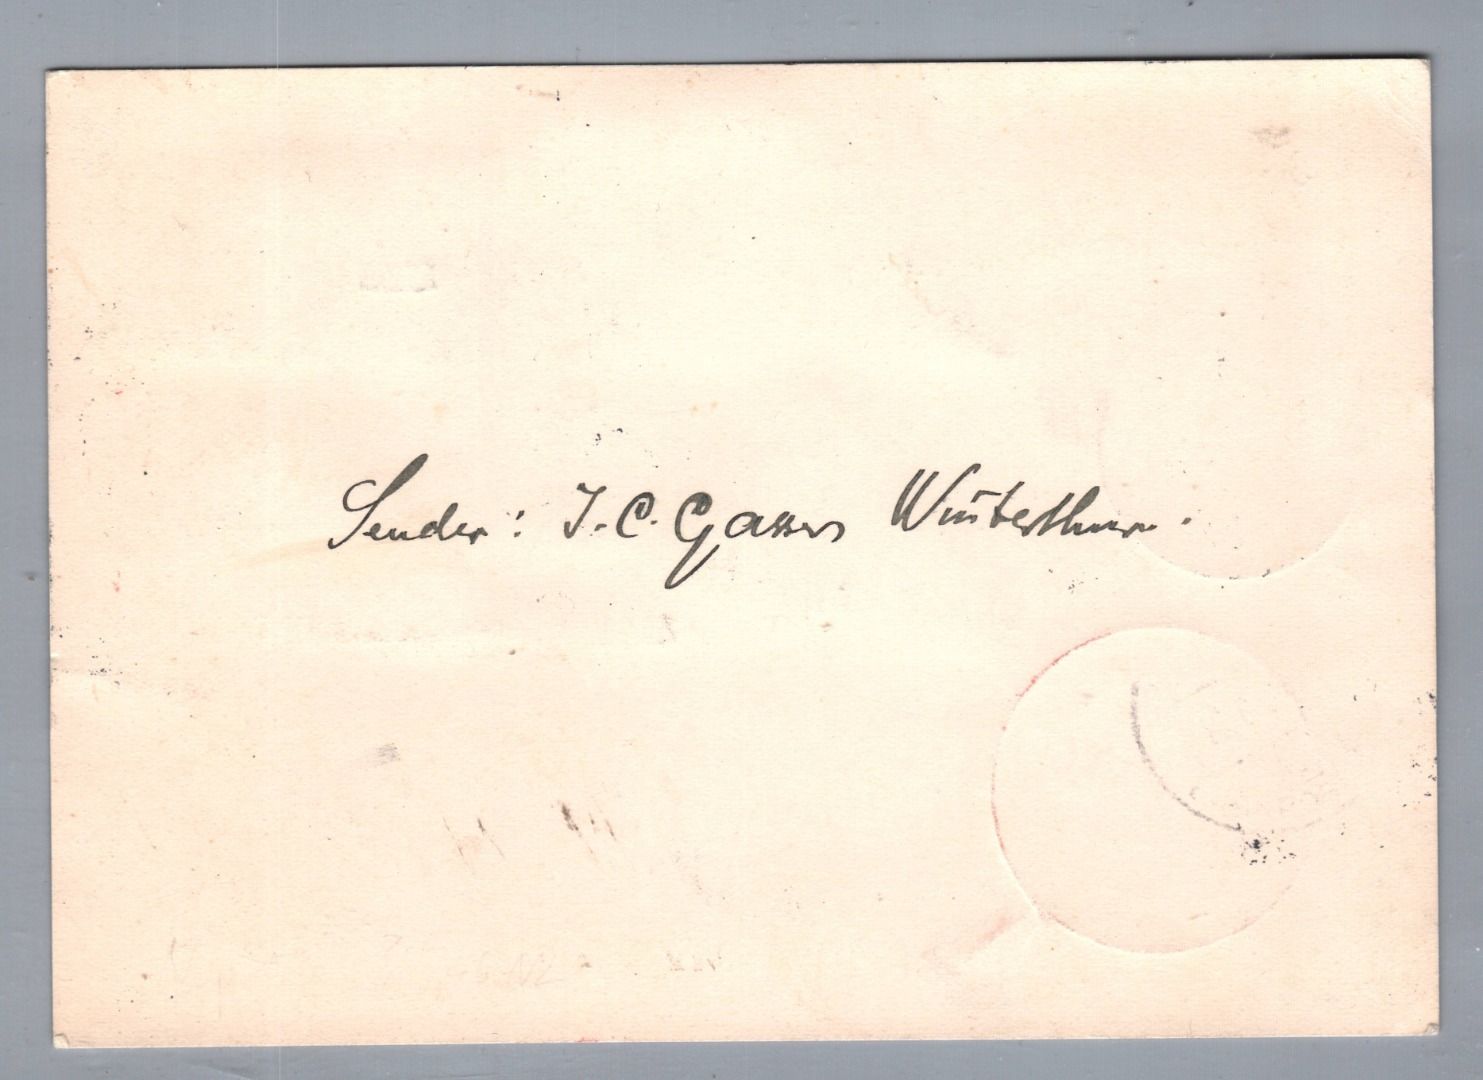 Sender: J. C. Gasser Winterthur.